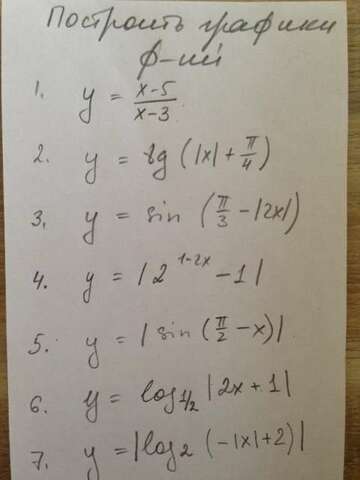 Построить графики
ф-ий
1. y = x-5/x-3
2. y = tg (|x| + π/4)
3. y = sin (π/3 - |2x|)
4. y = |2^{1-2x} - 1|
5. y = |sin (π/2 - x)|
6. y = log_{1/2} |2x + 1|
7. y = |log_2 (-|x|+2)|